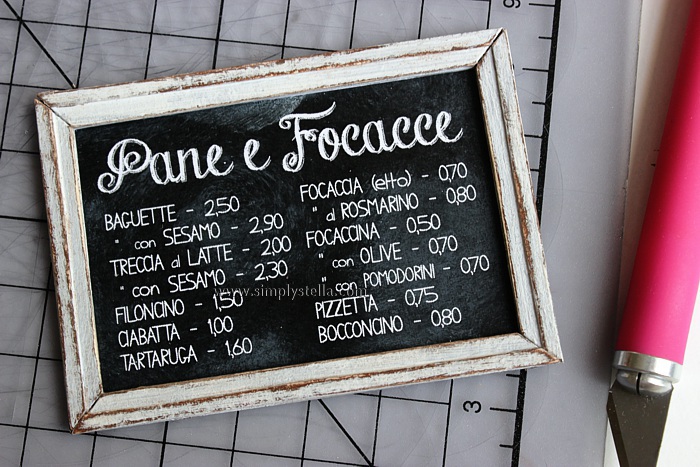 Pane e Focacce
BAGUETTE - 2,50
" con SESAMO - 2,90
TRECCIA al LATTE - 2,00
" con SESAMO - 2,30
FILONCINO - 1,50
CIABATTA - 1,00
TARTARUGA - 1,60
FOCACCIA (etto) - 0,70
" al ROSMARINO - 0,80
FOCACCINA - 0,50
" con OLIVE - 0,70
" con POMODORINI - 0,70
PIZZETTA - 0,75
BOCCONCINO - 0,80
www.simplystella.com
3